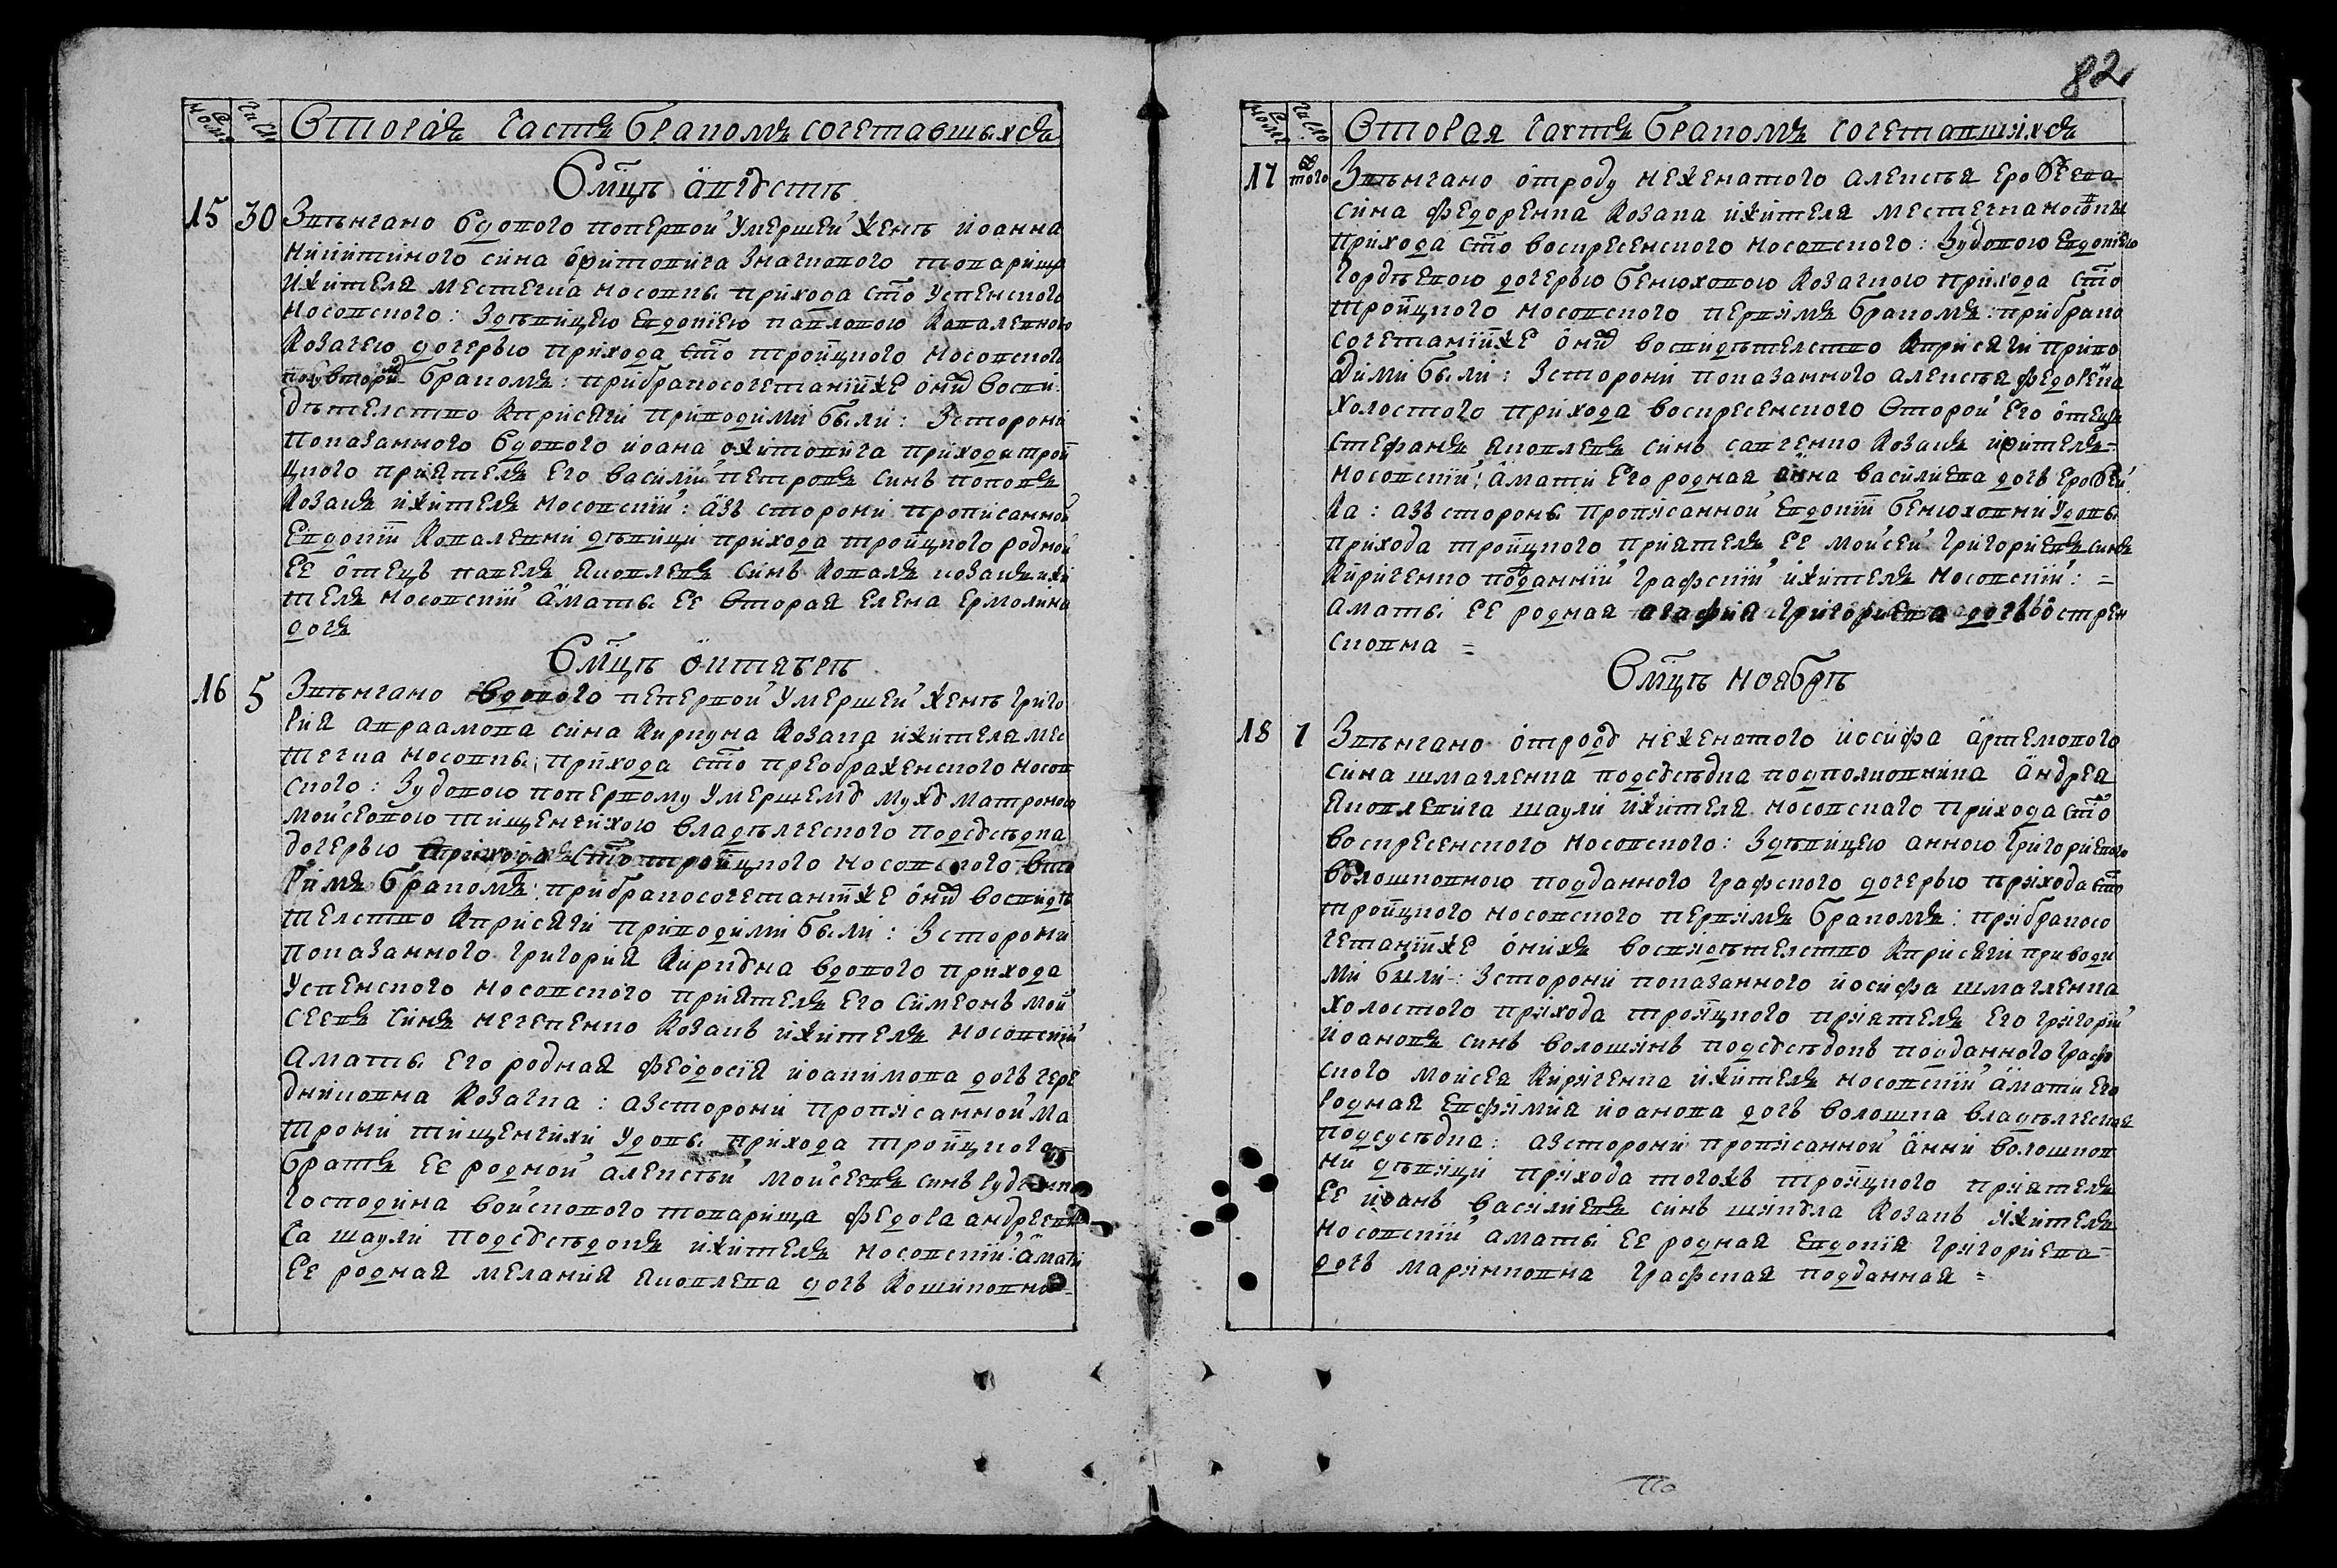 82
Втораѧ Частъ бракомъ сочетавшыхсѧ
Вм҃цѣ августѣ
15 30 Звѣнчано вдового поперво́й умершей женѣ иоанна
никитиного сина Ѡхитовича значкового товарища
ижителя местечка носовки прихода ст҃о успенского
носовского: Здѣвицею Евдокиею павловою коваленково
козачею дочерью прихода ст҃о троицкого носовского
бракомъ: прибракосочетаніижѣ онихъ восви
дѣтелство кприсяги приводими были: Зсторони
показанного вдового иоана охитовича прихода трои
цкого приятелъ его василий петровъ синъ поповъ
козакъ ижителъ носовский: азъ сторони прописанной
Евдокіи коваленки дѣвици прихода троицкого родной
ее отецъ павелъ яковлевъ синъ ковалъ козакъ ижи
телъ носовский аматъ ее вторая елена ермолина
дочъ
Вм҃цѣ октябрѣ
16 5 Звѣнчано вдового поперво́й умершей женѣ григо
рия авраамова сина кирпуна козака ижителя мес
течка носовки, прихода ст҃о преображенского носов
ского: Зудовою поперво́му умершему мужу матроною
мойсеовою тищенчихою владѣлческого подсусѣдка
дочерью прихода ст҃о троицкого носовского вто
римъ бракомъ: прибракосочетаніижѣ онихъ восвидѣ
телство кприсяги приводими были: Зсторони
показанного григория кирпуна вдового прихода
успенского носовского приятелъ его симеонъ мой
сеевъ синъ нечепенко козакъ ижителъ носовский
аматъ его родная феодосия иоакимова дочъ чере
дниковна козачка: азсторони прописанной ма
трони тищенчихи удови прихода троицкого
братъ ее родной алексѣй мойсеевъ синъ
господина войскового товарища федора андрееви
ча шаули подсусѣдокъ ижителъ носовский: амати
ее родная мелания яковлева дочъ кошиковна
Втораѧ Частъ бракомъ сочетавшихсѧ
17 того Звѣнчано отроду неженатого алексѣя ерофеева
сина федоренка козака ижителя местечка носовки
прихода ст҃о воскресенского носовского: Зудовою Евдокиею
гордѣевою дочерью бенюховою козачкою прихода ст҃о
троицкого носовского первимъ бракомъ: прибрако
сочетаніижѣ онихъ восвидѣтелство кприсяги приво
дими были: Зсторони показанного алексѣя федоренка
холостого прихода воскресенского второй его отецъ
стефанъ яковлевъ синъ савченко козакъ ижителъ
носовский: амати его родная анна василиева дочъ
ка: азъ сторони прописанной Евдокіи бенюховни удови
прихода троицкого приятелъ ее мойсей григориевъ синъ
кириченко подданний графский ижителъ носовский:
амати ее родная агафия григориева дочъ острен
сковна
Вм҃цѣ ноябрѣ
18 1 Звѣнчано отроду неженатого иосифа артемового
сина шмагленка подсусѣдка подполковника андрея
яковлевича шаули ижителя носовского прихода ст҃о
воскресенского носовского: Здѣвицею анною григориевою
волошковною подданного графского дочерью прихода ст҃о
троицкого носовского первимъ бракомъ: прибракосо
четаніижѣ онихъ восвидѣтелство кприсяги приводи
ми были: Зсторони показанного иосифа шмагленка
холостого прихода троицкого приятелъ его григорий
иоановъ синъ волошинъ подсусѣдокъ подданного граф
ского мойсея кириченка ижителъ носовский амати его
родная Евфимия иоанова дочъ волошка владѣлческая
подсусѣдка: азсторони прописанной анни волошков
ни дѣвици прихода тогожъ троицкого приятелъ
ее иоанъ василиевъ синъ шикула козакъ ижителъ
носовский аматъ ее родная Евдокия григориева
дочъ маринковна графская подданная